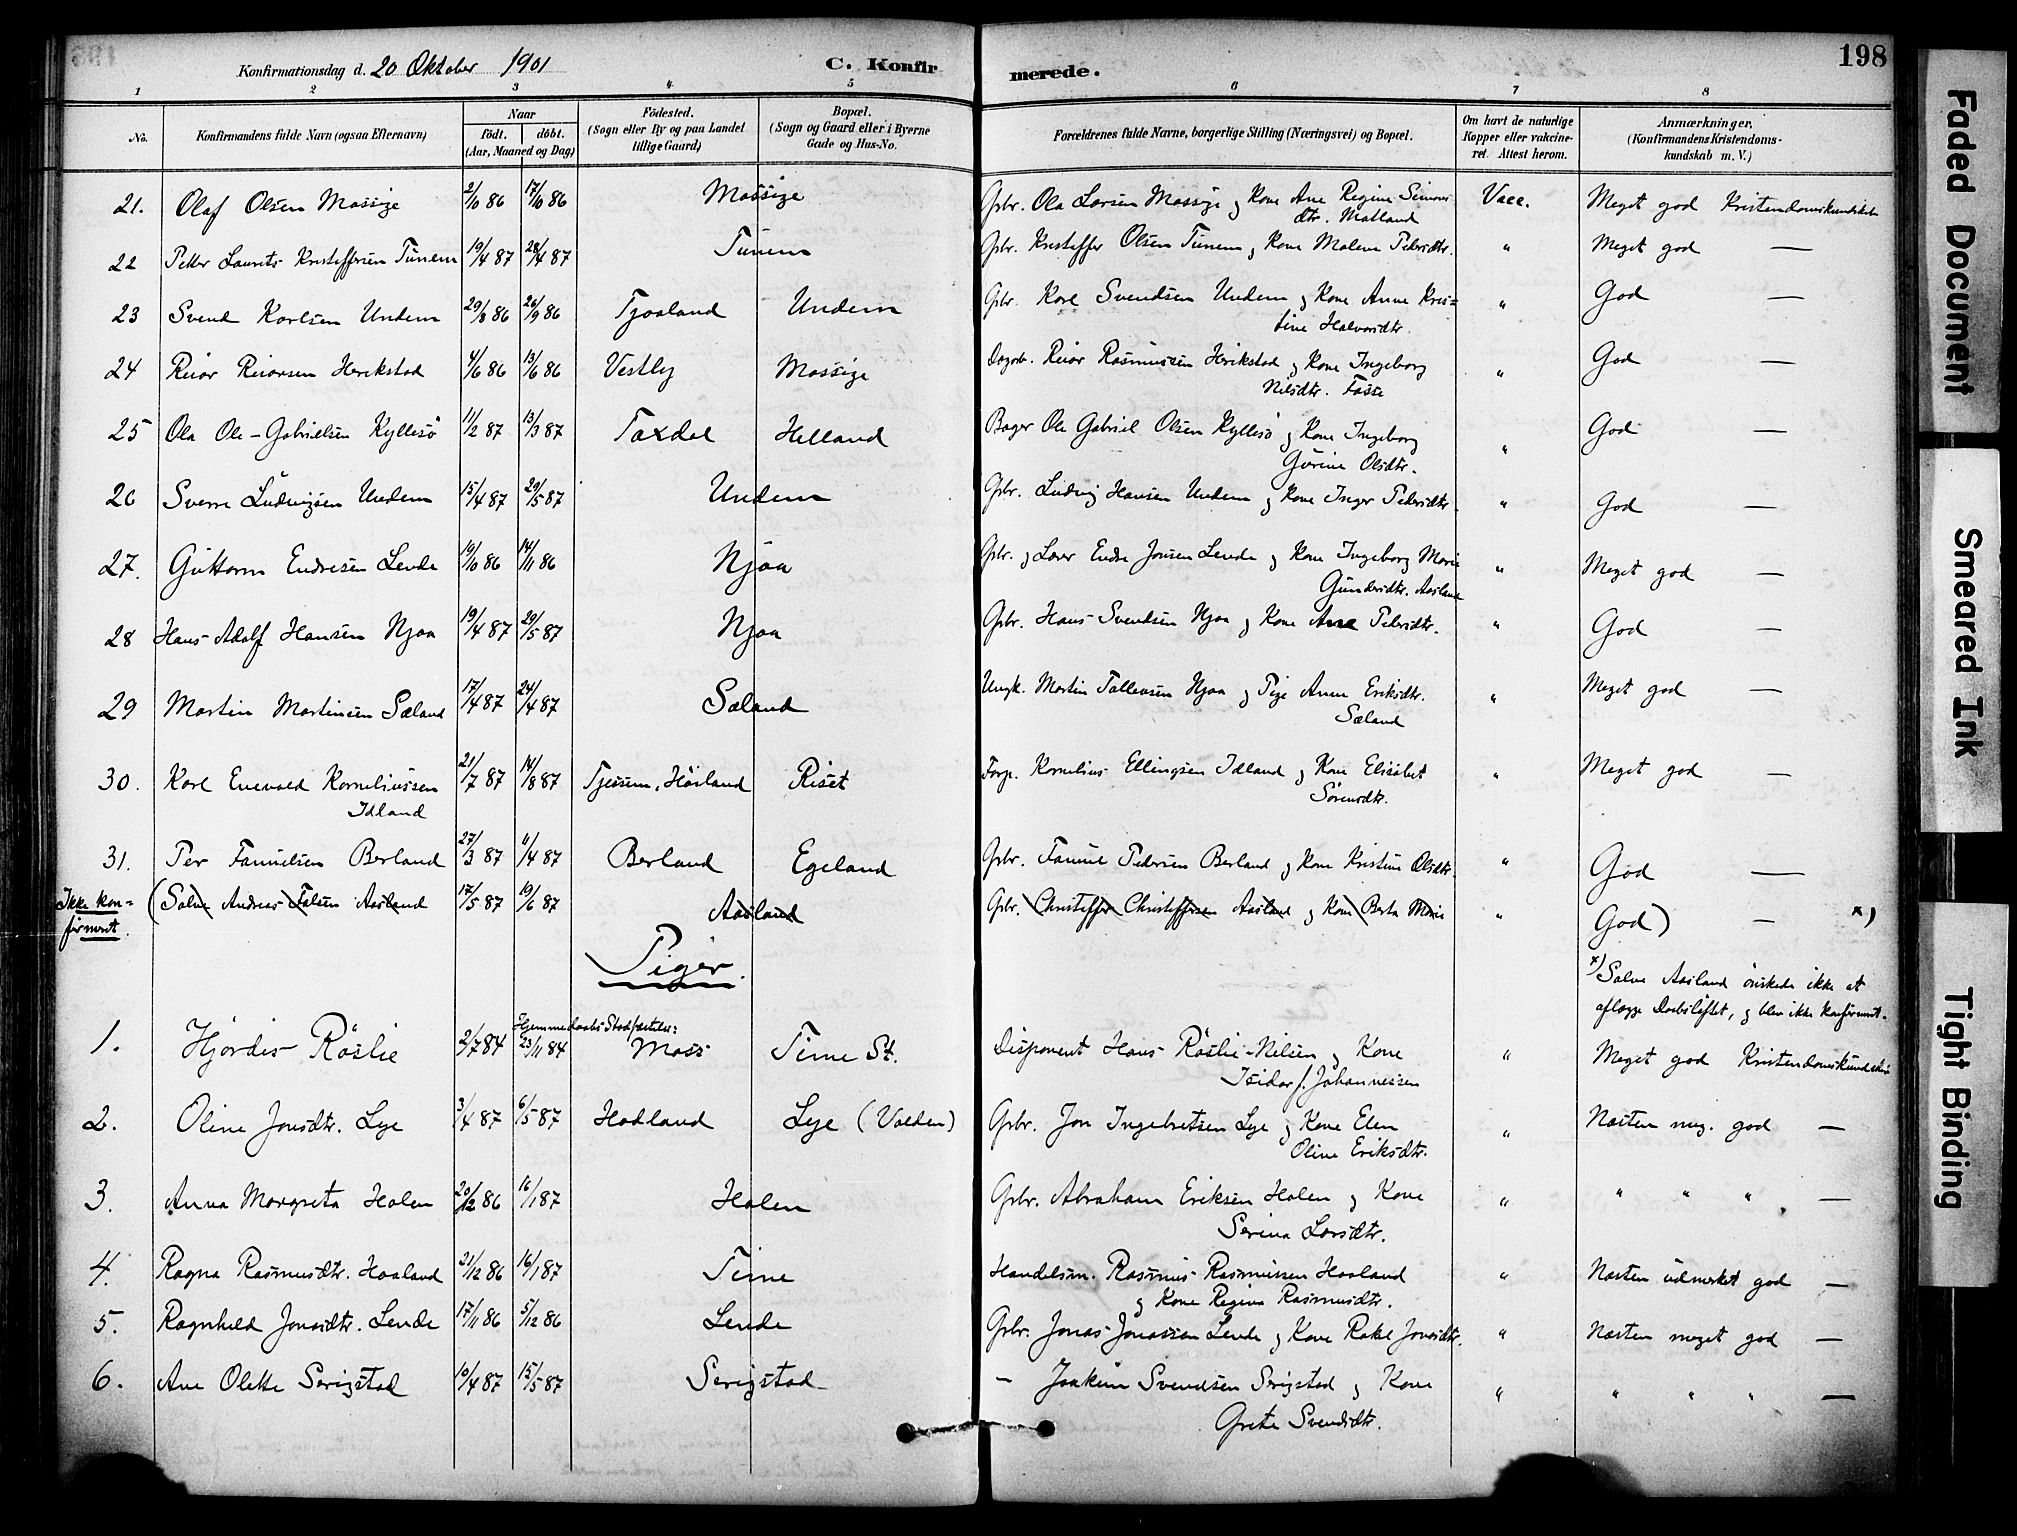 198
Konfirmationsdag d. 20 Oktober 1901
C. Konfirmerede.
1 2 3 4 5 6 7 8
No.
Konfirmandens fulde Navn (ogsaa Efternavn)
Naar
födt. döbt.
(Aar, Maaned og Dag)
Födested.
(Sogn eller By og paa Landet
tillige Gaard)
Bopæl.
(Sogn og Gaard eller i Byerne
Gade og Hus-No.
Forældrenes fulde Navne, borgerlige Stilling (Næringsvei) og Bopæl.
Om havt de naturlige
Kopper eller vakcine-
ret. Attest herom.
Anmærkninger,
(Konfirmandens Kristendoms-
kundskab m. V.)
21. Olaf Olsen Mossige 2/10 86 17/10 86 Mossige Gbr. Ola Larsen Mossige g Kone Ane Regine Simons Vacc. Meget god Kristendomskundskab
dtr. Matland
22 Petter Laurits Kristoffersen Tunem 19/4 87 28/4 87 Tunem Gbr. Kristoffer Olsen Tunem g Kone Malene Pedersdtr. " Meget god —
23 Svend Karlsen Undem 29/8 86 26/9 86 Tjaaland Undem Gbr. Karl Svendsen Undem g Kone Anne Kris=
tine Halvorsdtr. " God —
24 Reior Reiorsen Herikstad 4/6 86 13/6 86 Vestly Mossige Dagarb. Reior Rasmussen Herikstad g Kone Ingeborg
Nilsdtr. Fosse " God —
25 Ola Ole-Gabrielsen Kyllesö 11/2 87 13/3 87 Taxdal Helland Bager Ole Gabriel Olsen Kyllesö g Kone Ingeborg
Gurine Olsdtr. " God —
26 Sverre Ludvigsen Undem 15/4 87 29/5 87 Undem Gbr. Ludvig Hansen Undem g Kone Inger Pedersdtr. " God —
27. Guttorm Endresen Lende 19/10 86 14/11 86 Njaa Gbr. g Lærer Endre Jonsen Lende g Kone Ingeborg Marie
Gundersdtr. Aasland " Meget god —
28 Hans Adolf Hansen Njaa 19/4 87 29/5 87 Njaa Gbr. Hans Svendsen Njaa g Kone Ane Pedersdtr. " God —
29 Martin Martinsen Sæland 17/4 87 24/4 87 Sæland Ungk. Martin Tollevsen Njaa g Pige Anne Eriksdtr.
Sæland " Meget god —
30. Karl Enevald Korneliussen
Idland 21/7 87 14/8 87 Tjessem, Høiland Riset Forp. Kornelius Ellingsen Idland g Kone Elisabet
Sörensdtr. " Meget god —
31. Per Famuelsen Berland 27/3 87 11/4 87 Berland Egeland Gbr. Famuel Pedersen Berland g Kone Kristine Olsdtr. " God —
Ikke kon=
firmert. (Salve Andreas Falsen Aasland 17/5 87 19/6 87 Aasland Gbr. Christoffer Christoffersen Aasland g Kone Berta Marie " God) — x)
Piger.
x) Salve Aasland önskede ikke at
aflægge Daabslöftet, g blev ikke konfirmert.
1. Hjördis Röslie 2/7 84 Hjemmedaabs Stadfæstelse: 23/11 84 Moss Time St. Disponent Hans Röslie-Nilsen g Kone
Isidor f. Johannessen " Meget god Kristendomskundskab
2. Oline Jonsdtr. Lye 3/4 87 6/5 87 Hadland Lye (Valden) Gbr. Jon Ingebretsen Lye g Kone Elen
Oline Eriksdtr. " Næsten meg. god —
3. Anna Margreta Holen 20/12 86 16/1 87 Holen Gbr. Abraham Eriksen Holen g Kone
Serina Larsdtr. " " " " —
4. Ragna Rasmusdtr. Haaland 21/12 86 16/1 87 Time Handelsm. Rasmus Rasmussen Haaland
g Kone Regina Rasmusdtr. " Næsten udmerket god —
5. Ragnhild Jonasdtr. Lende 17/11 86 5/12 86 Lende Gbr. Jonas Jonassen Lende g Kone Rakel Jonsdtr. " Næsten meget god —
6. Ane Olette Serigstad 10/4 87 15/5 87 Serigstad — Joakim Svendsen Serigstad g Kone
Grete Svendsdtr. " " " " —
Faded Document
Smeared Ink
Tight Binding